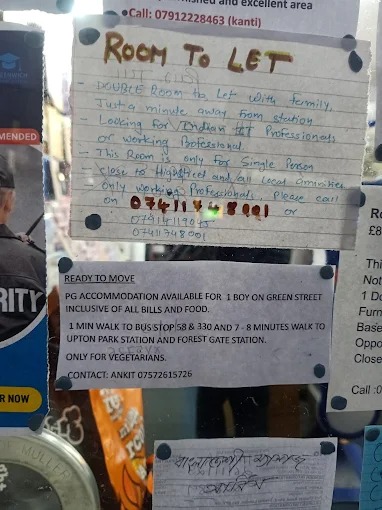 nished and excellent area
•Call: 07912228463 (kanti)
ROOM TO LET
- DOUBLE Room to Let with family,
Just a minute away from station
- Looking for Indian IT Professionals
or working Professional
- This Room is only for Single Person
close to Highstreet and all Local amenities
Only working Professionals, Please call
on 07411748001 or
07414119045
07411748001
MENDED
RITY
R NOW
READY TO MOVE
PG ACCOMMODATION AVAILABLE FOR 1 BOY ON GREEN STREET
INCLUSIVE OF ALL BILLS AND FOOD.
1 MIN WALK TO BUS STOP 58 & 330 AND 7 - 8 MINUTES WALK TO
UPTON PARK STATION AND FOREST GATE STATION.
ONLY FOR VEGETARIANS.
CONTACT: ANKIT 07572615726
Ro
£8
Thi
Not
1 Do
Furn
Base
Oppo
Close
Call :0
MULLER
বাংলাদেশী